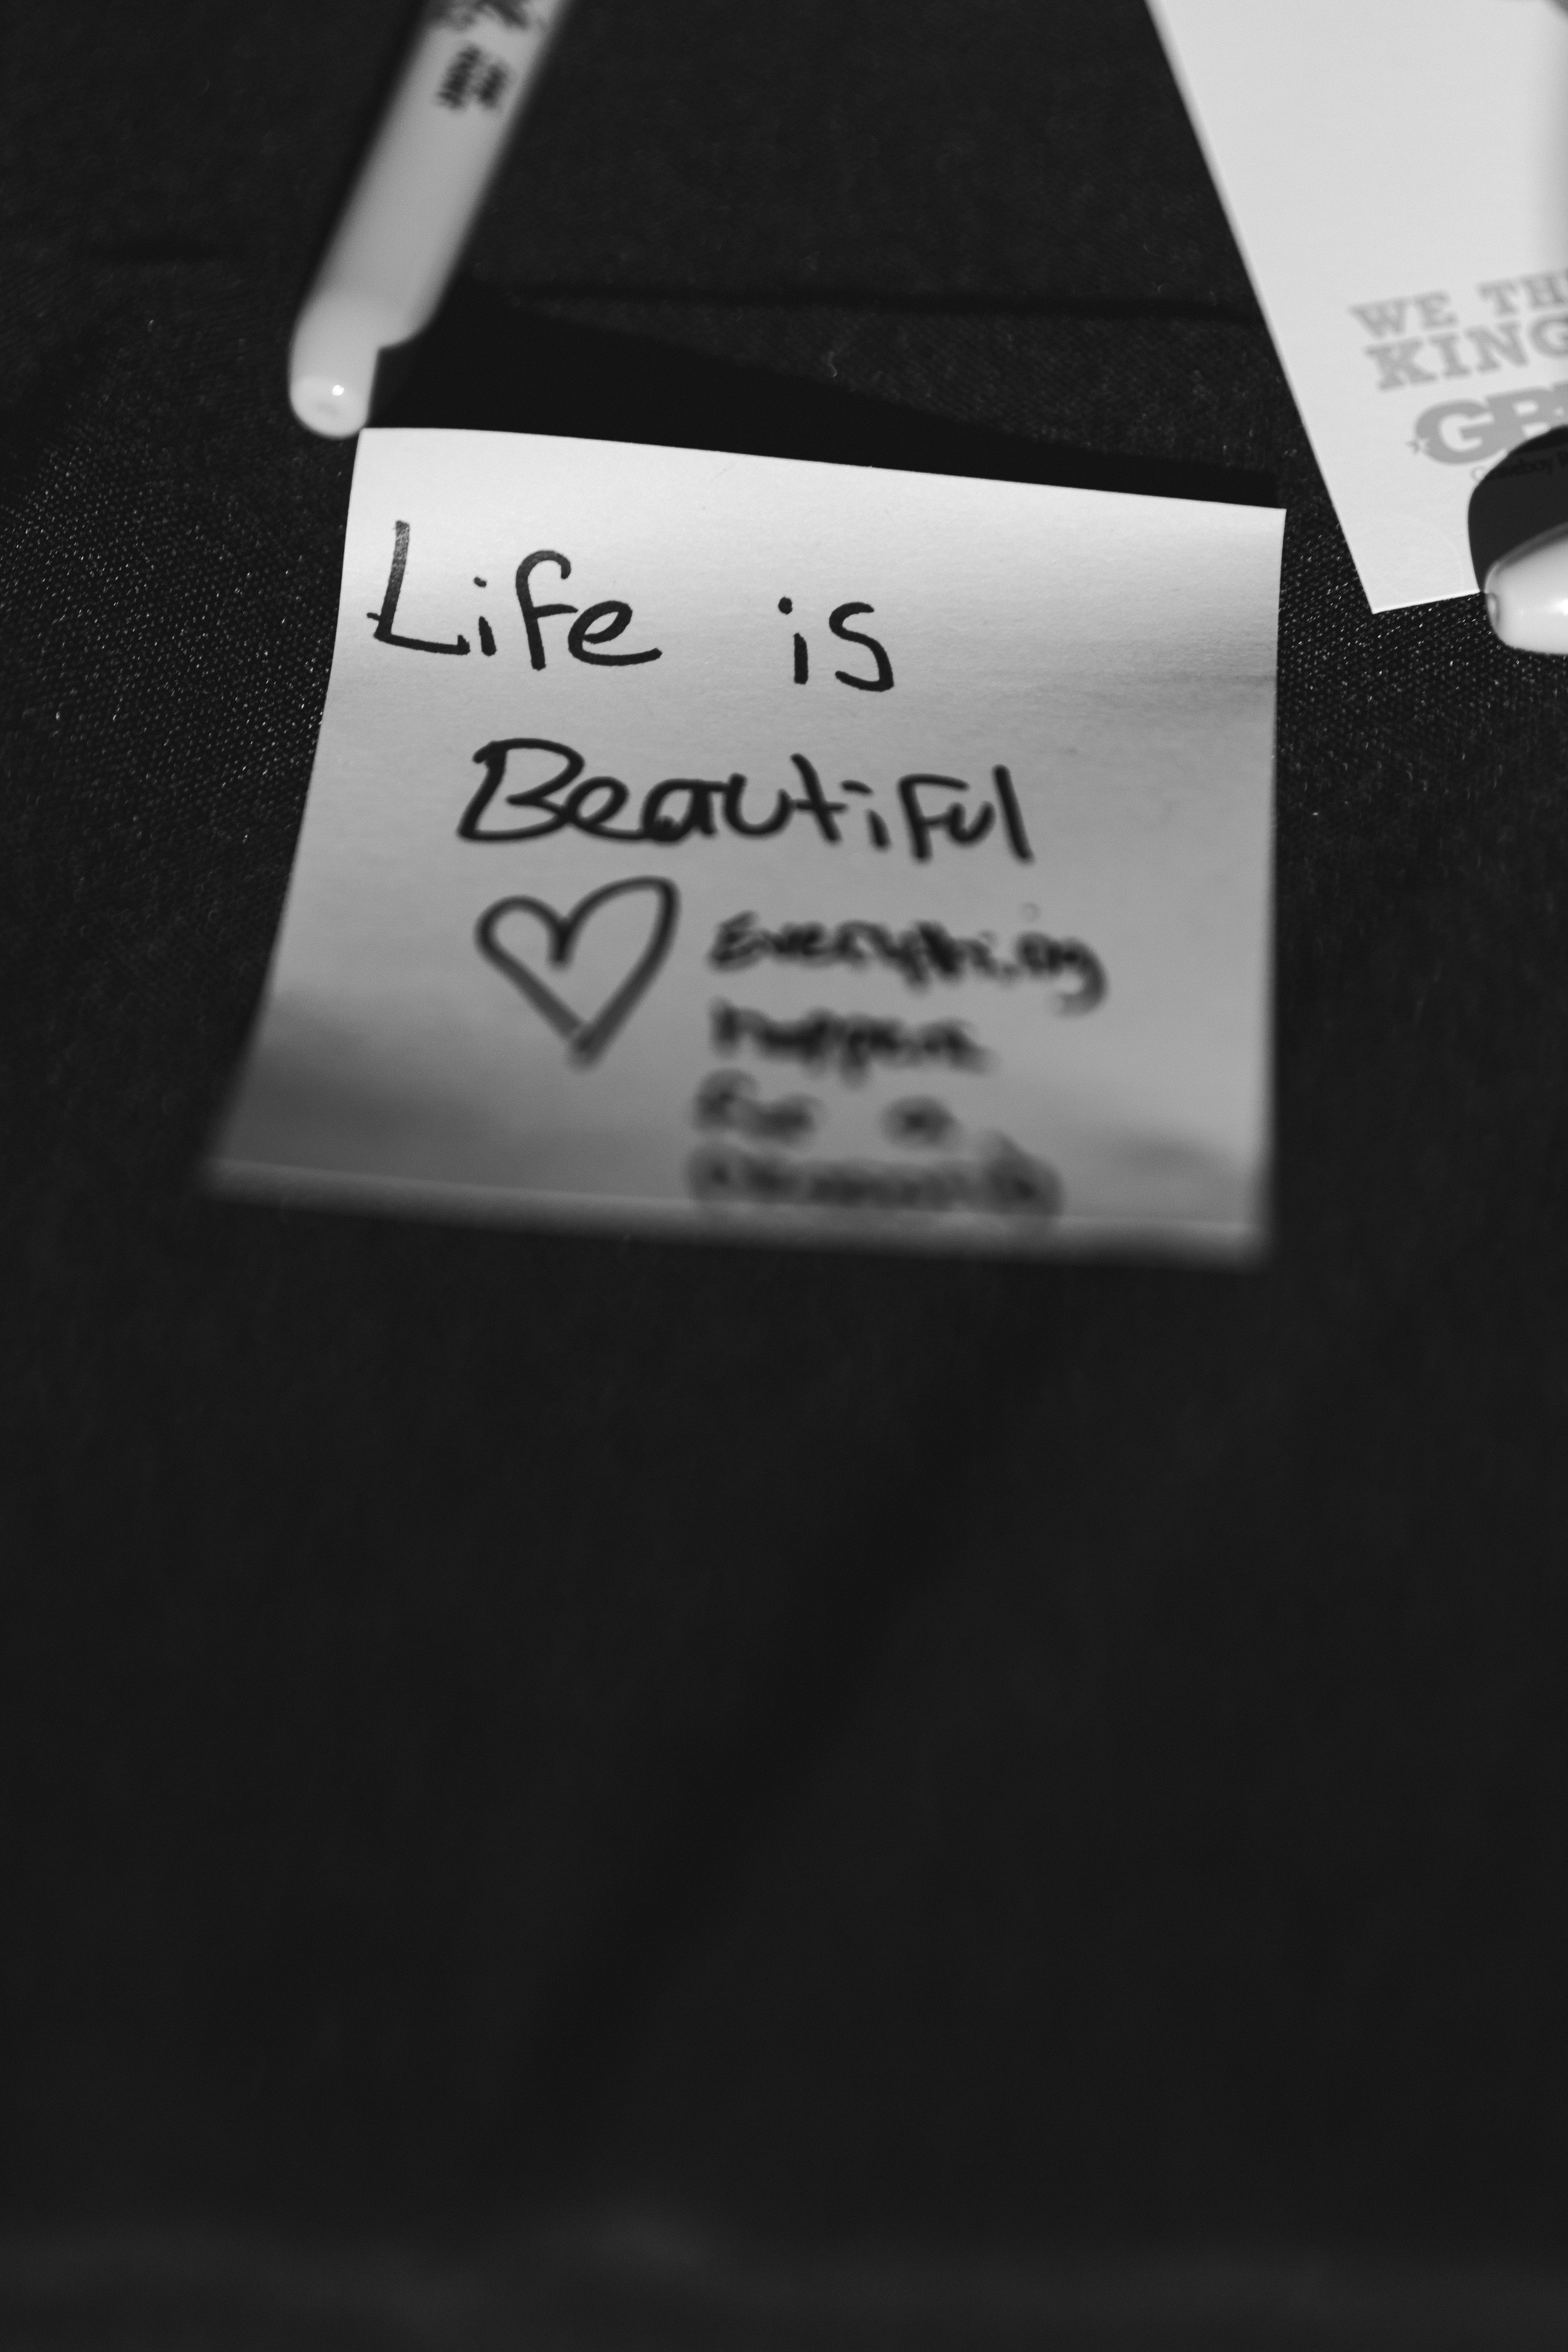 Life is
Beautiful
Everything
happens
for a
WE TH
KING
GR